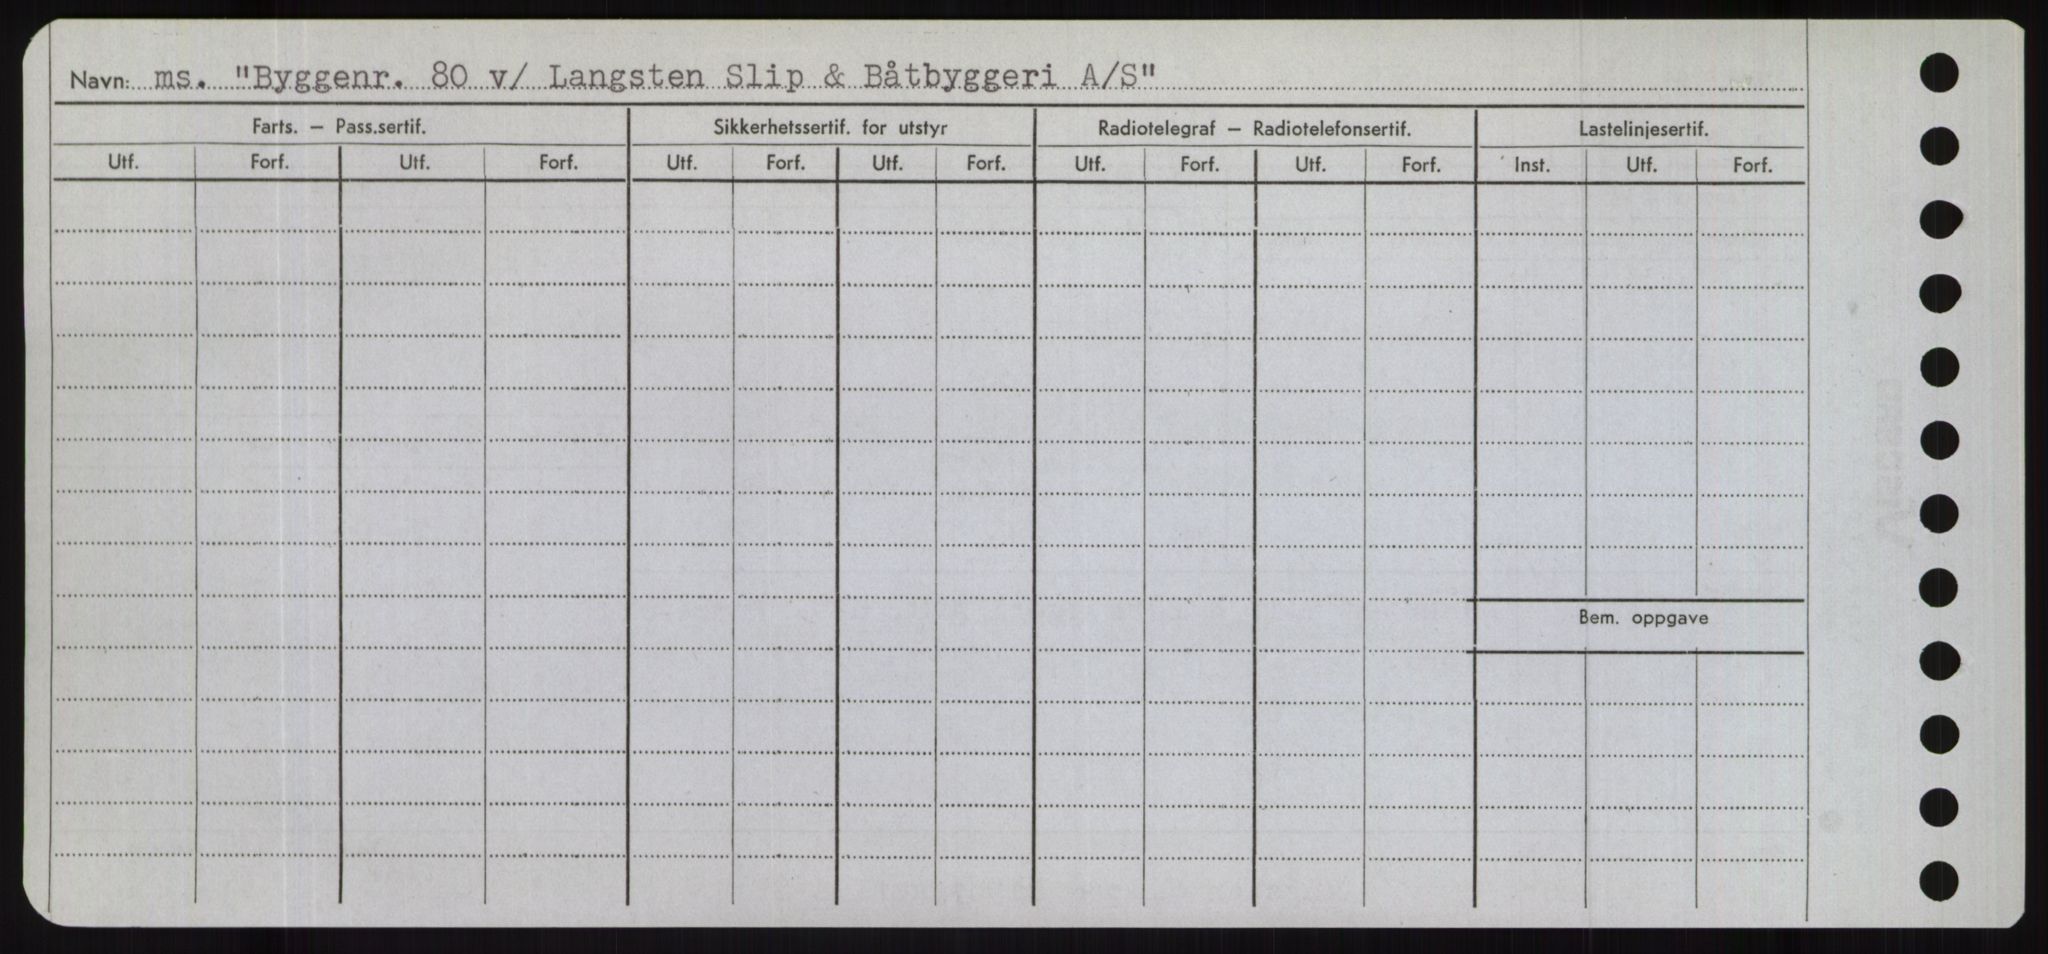 Navn: ms. "Byggenr. 80 v/ Langsten Slip & Båtbyggeri A/S"
Farts. — Pass.sertif. Sikkerhetssertif. for utstyr Radiotelegraf — Radiotelefonsertif. Lastelinjesertif.
Utf. Forf. Utf. Forf. Utf. Forf. Utf. Forf. Utf. Forf. Utf. Forf. Inst. Utf. Forf.
Bem. oppgave